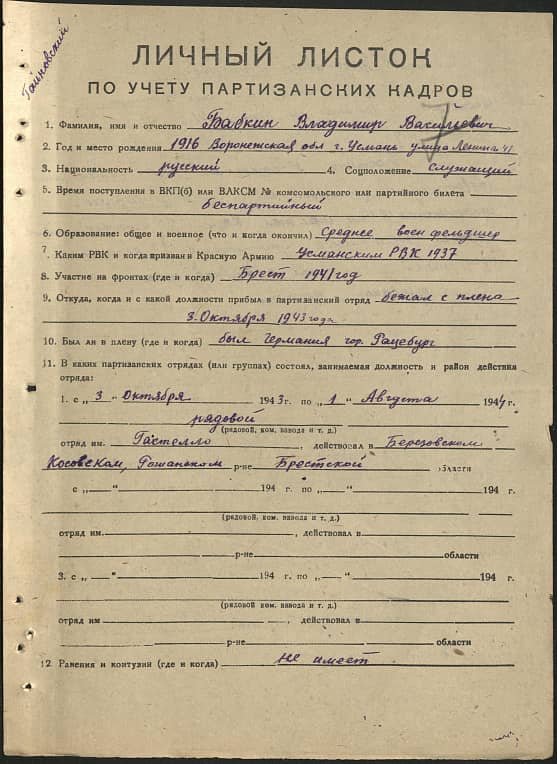 Гайновский
ЛИЧНЫЙ ЛИСТОК
ПО УЧЕТУ ПАРТИЗАНСКИХ КАДРОВ
1. Фамилия, имя и отчество Бабкин Владимир Васильевич
2. Год и место рождения 1916 Воронежская обл г. Усмань улица Ленина 41
3. Национальность русский 4. Соцположение служащий
5. Время поступления в ВКП(б) или ВЛКСМ № комсомольского или партийного билета
беспартийный
6. Образование: общее и военное (что и когда окончил) Среднее воен фельдшер
7. Каким РВК и когда призван в Красную Армию Усманским РВК 1937
8. Участие на фронтах (где и когда) Брест 1941 год
9. Откуда, когда и с какой должности прибыл в партизанский отряд бежал с плена
3. Октября 1943 года
10. Был ли в плену (где и когда) был Германия гор. Рацебург
11. В каких партизанских отрядах (или группах) состоял, занимаемая должность и район действия
отряда:
1. с „ 3 “ Октября 1943 г. по „ 1 “ Августа 1944 г.
рядовой
(рядовой, ком. взвода и т. д.)
отряд им. Гастелло, действовал в Березовском
Косовском, р-не Брестской области
с „ “ 194 г. по „ “ 194 г.
(рядовой, ком. взвода и т. д.)
отряд им. , действовал в
р-не области
3. с „ “ 194 г. по „ “ 194 г.
(рядовой, ком. взвода и т. д.)
отряд им , действовал в
р-не области
12 Ранения и контузии (где и когда) не имеет